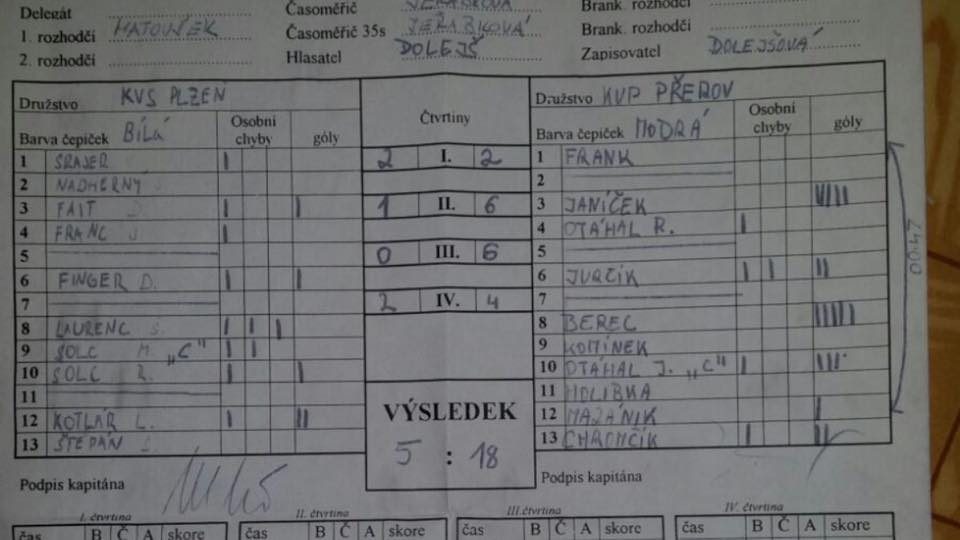 Delegát Časoměřič Brank. rozhodčí
1. rozhodčí MATOUŠEK Časoměřič 35s JEŘÁBKOVÁ Brank. rozhodčí
2. rozhodčí Hlasatel DOLEJŠ Zapisovatel DOLEJŠOVÁ
Družstvo KVS PLZEN Čtvrtiny Družstvo KVP PŘEROV
Barva čepiček BÍLÁ Osobní chyby góly Barva čepiček MODRÁ Osobní chyby góly
1 SRAJER 2 I. 2 1 FRANK
2 NADHERNY 2
3 FAIT 1 II. 6 3 JANÍČEK
4 FRANC J 4 OTÁHAL R.
5 0 III. 6 5
6 FINGER D. 6 JURČÍK
7 2 IV. 4 7
8 LAURENC S. 8 BEREC
9 SOLC M. „C" 9 KOMÍNEK
10 SOLC Z. 10 OTÁHAL J. „C"
11 11 HOLIBKA
12 KOTLÁR L. VÝSLEDEK 12 MAZÁNIK
13 ŠTEPÁN 5 : 18 13 CHROMČÍK
24:00
Podpis kapitána Podpis kapitána
I. čtvrtina II. čtvrtina III. čtvrtina IV. čtvrtina
čas B Č A skore čas B Č A skore čas B Č A skore čas B Č A skore